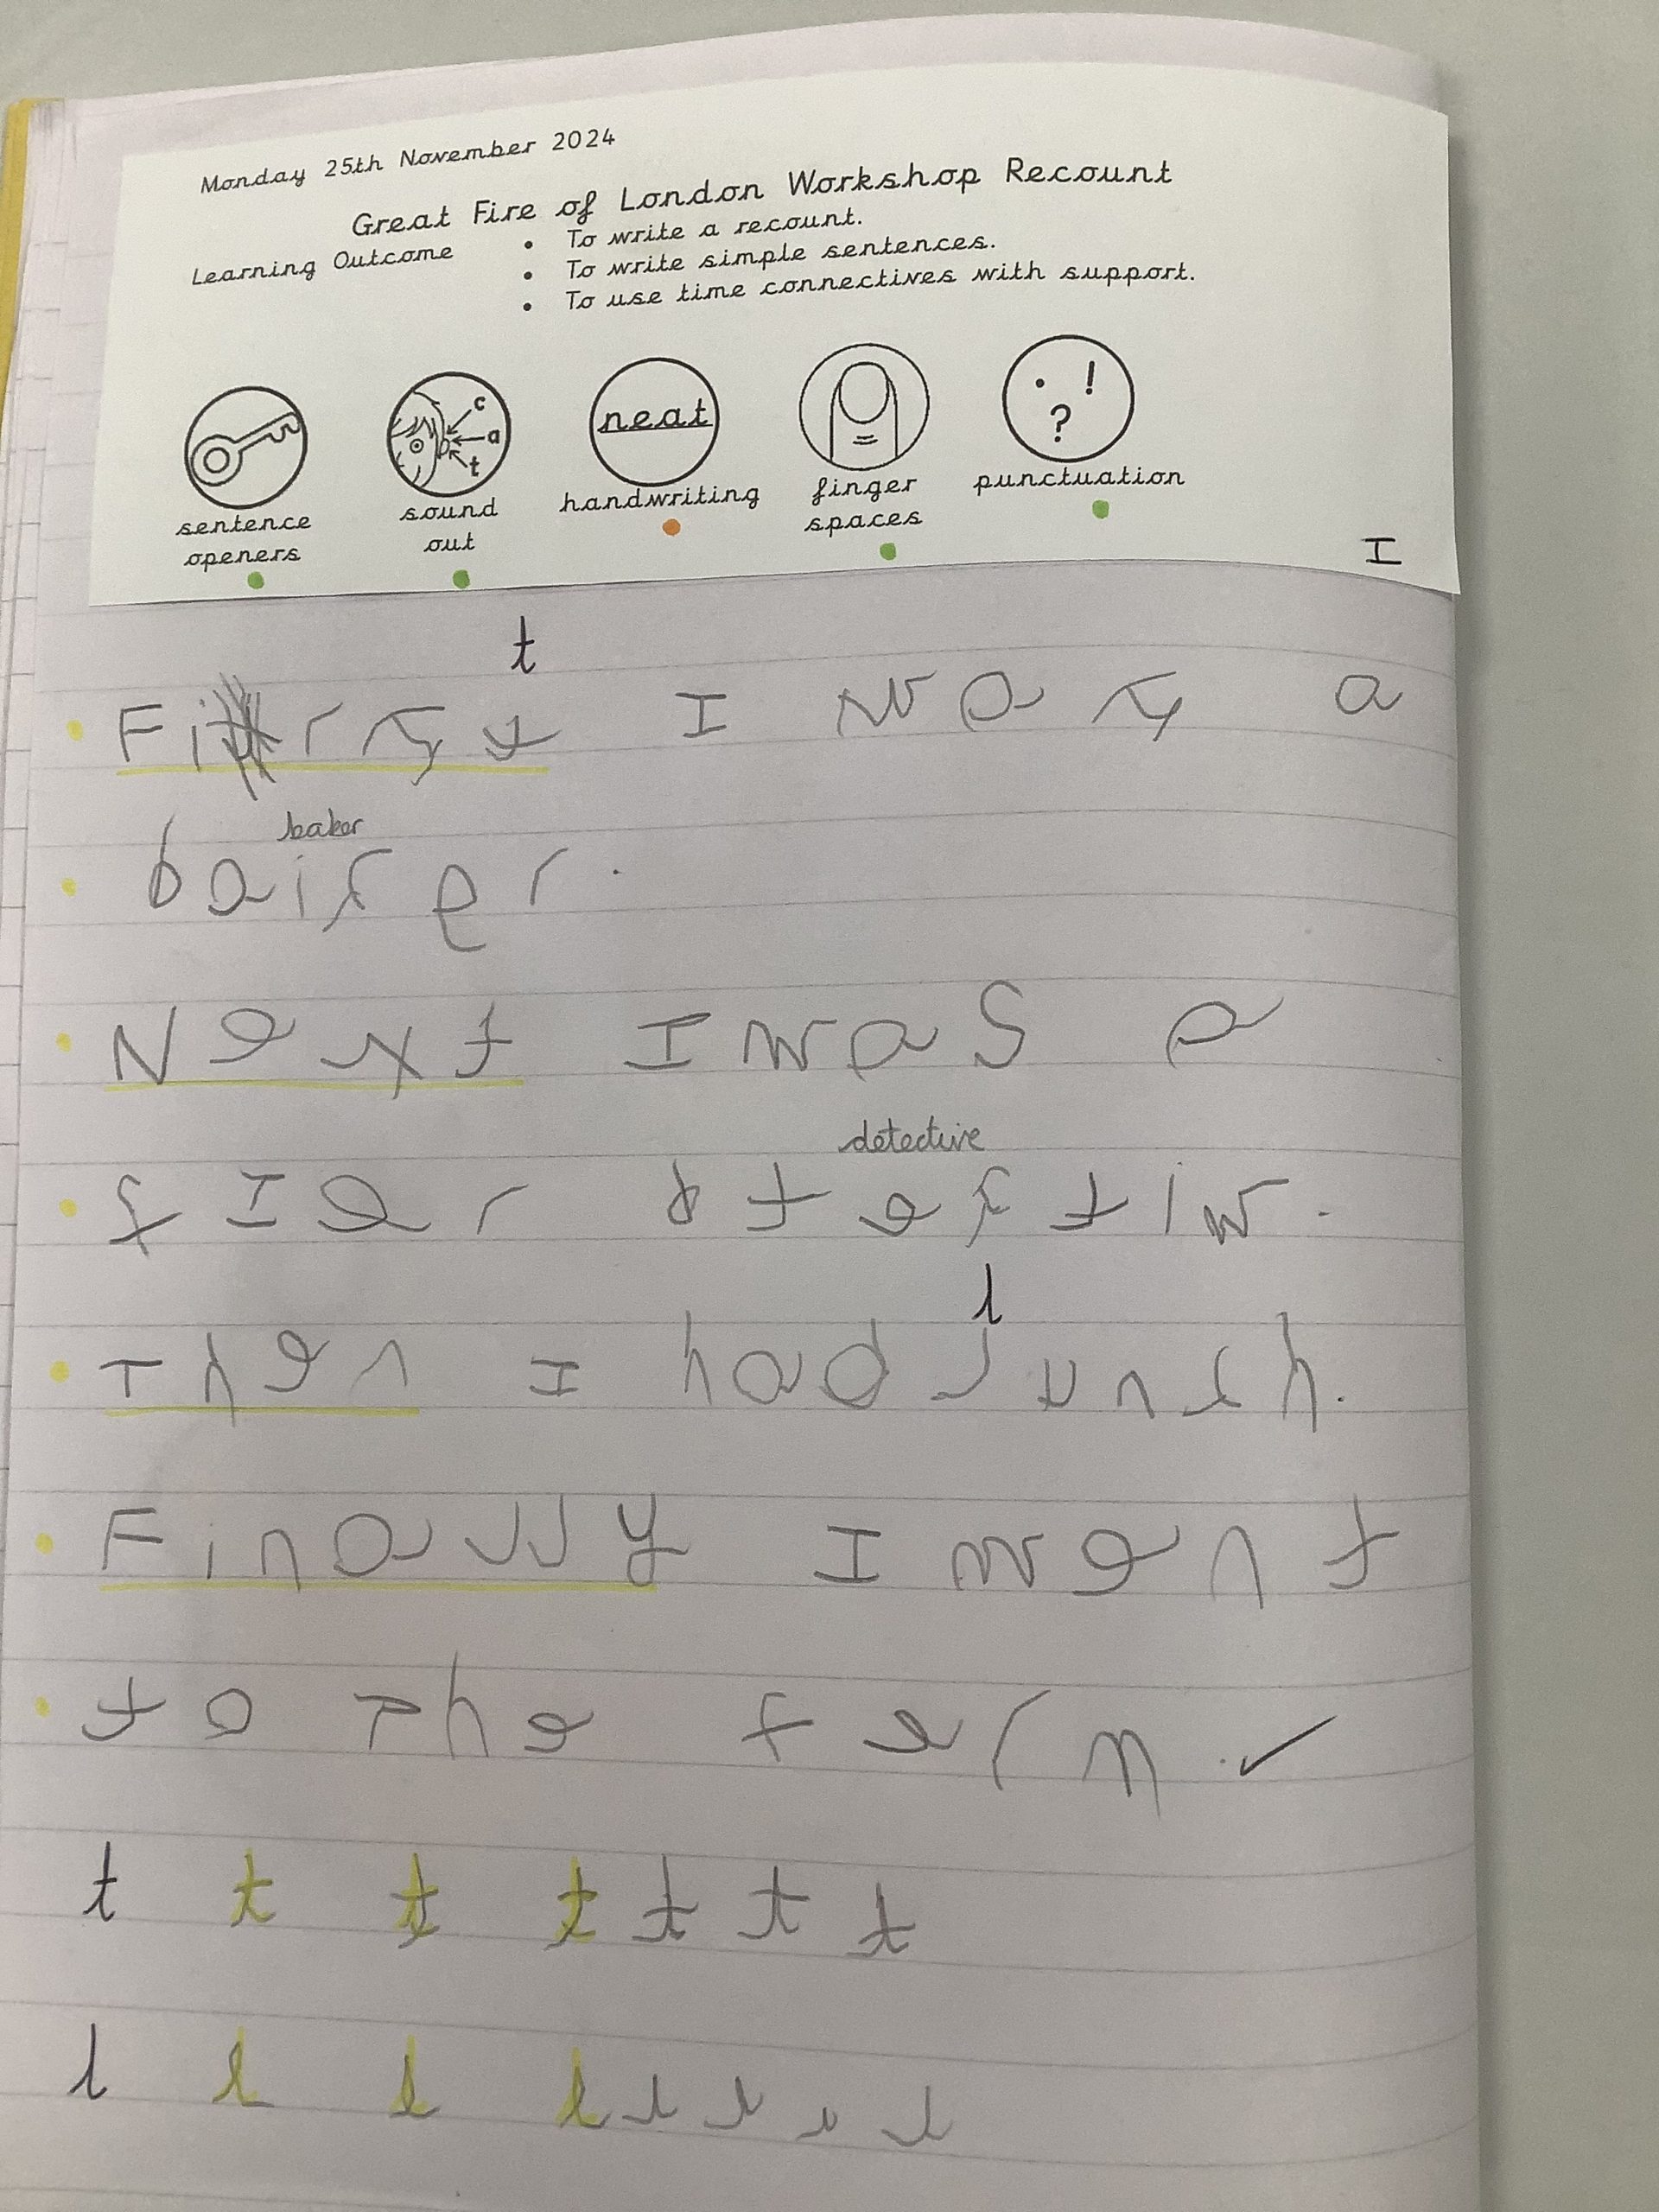 Monday 25th November 2024
Great Fire of London Workshop Recount
Learning Outcome
• To write a recount.
• To write simple sentences.
• To use time connectives with support.
c
a
t
neat
. ! ?
sentence openers
sound out
handwriting
finger spaces
punctuation
I
t
First I was a
baker
baiker.
Next I was a
detective
fIer dtectiw.
l
Then I had lunch.
Finally I went
to the ferm.
t t t t t t t
l l l l l l l l